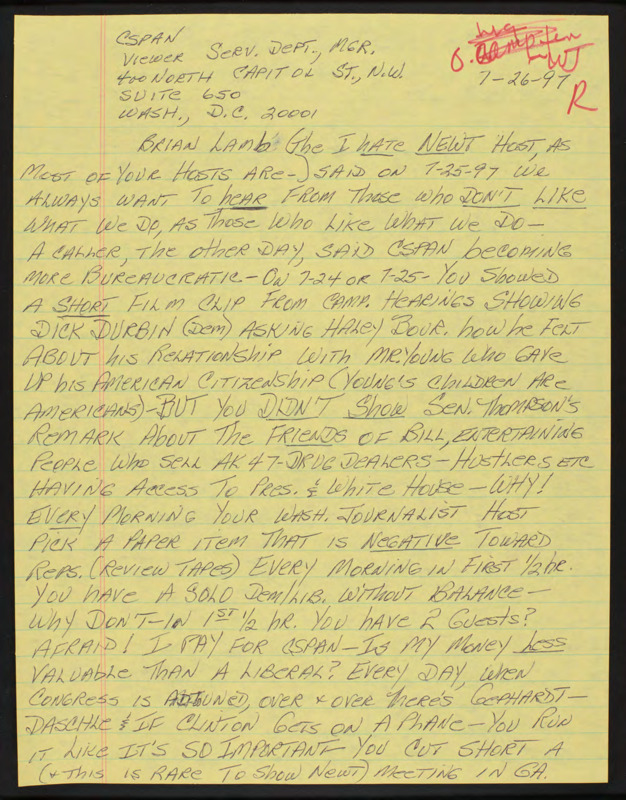 CSPAN
VIEWER SERV. DEPT., MGR.
400 NORTH CAPITOL ST., N.W.
SUITE 650
WASH., D.C. 20001
7-26-97
R
BRIAN LAMB (the I hATE NEWT HOST, AS
MOST OF YOUR HOSTS ARE-) SAID ON 7-25-97 WE
ALWAYS WANT TO hEAR FROM ThOSE WhO DON'T LIKE
WHAT WE DO, AS ThOSE WhO LIKE WHAT WE DO-
A CALLER, THE OTHER DAY, SAID CSPAN bECOMING
MORE BUREAUCRATIC- ON 7-24 OR 7-25- YOU ShOWED
A SHORT FILM CLIP FROM CAMP. HEARINGS SHOWING
DICK DURBIN (DEM) ASKING HALEY BOUR. hOW hE FELT
ABOUT hIS RELATIONSHIP WITH MR. YOUNG WHO GAVE
UP hIS AMERICAN CITIZENSHIP (YOUNG'S ChILDREN ARE
AMERICANS)- BUT YOU DIDN'T ShOW SEN. ThOMPSON'S
REMARK ABOUT THE FRIENDS OF BILL, ENTERTAINING
PEOPLE WHO SELL AK 47-DRUG DEALERS- HUSTLERS ETC
HAVING ACCESS TO PRES. & WHITE HOUSE - WHY!
EVERY MORNING YOUR WASH. JOURNALIST HOST
PICK A PAPER ITEM THAT IS NEGATIVE TOWARD
REPS. (REVIEW TAPES) EVERY MORNING IN FIRST 1/2 hR.
YOU HAVE A SOLO DEM/LIB. WITHOUT BALANCE-
WhY DON'T- IN 1ST 1/2 hR. YOU HAVE 2 GUESTS?
AFRAID! I PAY FOR CSPAN- IS MY MONEY LESS
VALUABLE THAN A LIBERAL? EVERY DAY, WHEN
CONGRESS IS OVER & OVER ThERE'S GEPHARDT-
DASCHLE & IF CLINTON GETS ON A PLANE- YOU RUN
IT LIKE IT'S SO IMPORTANT- YOU CUT SHORT A
(& THIS IS RARE TO ShOW NEWT) MEETING IN GA.